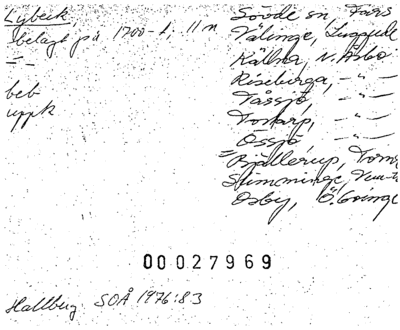 Lybeck,
belagt på 1700-t, 11 n
= -
beb
uppk
Sövde sn, Färs
Välinge, Luggude
Källna, N. Åsbo
Riseberga, -"-
Tåssjö, -"-
Tostarp, -"-
Össjö -"-
= Bjällerup, Torna
Skimminge, Vem
Osby, Ö. Göinge
00027969
Hallberg SOÅ 1976:83